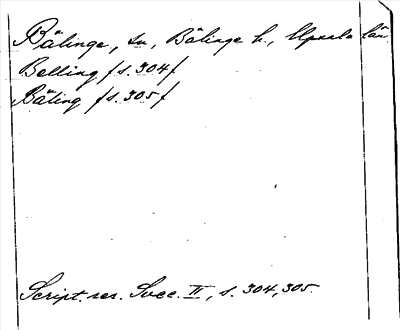 Bälinge, sn, Bälinge h., Upsala län.
Belling /s. 304/
Bäling /s. 305/
Script. rer. Svec. II, s. 304, 305.